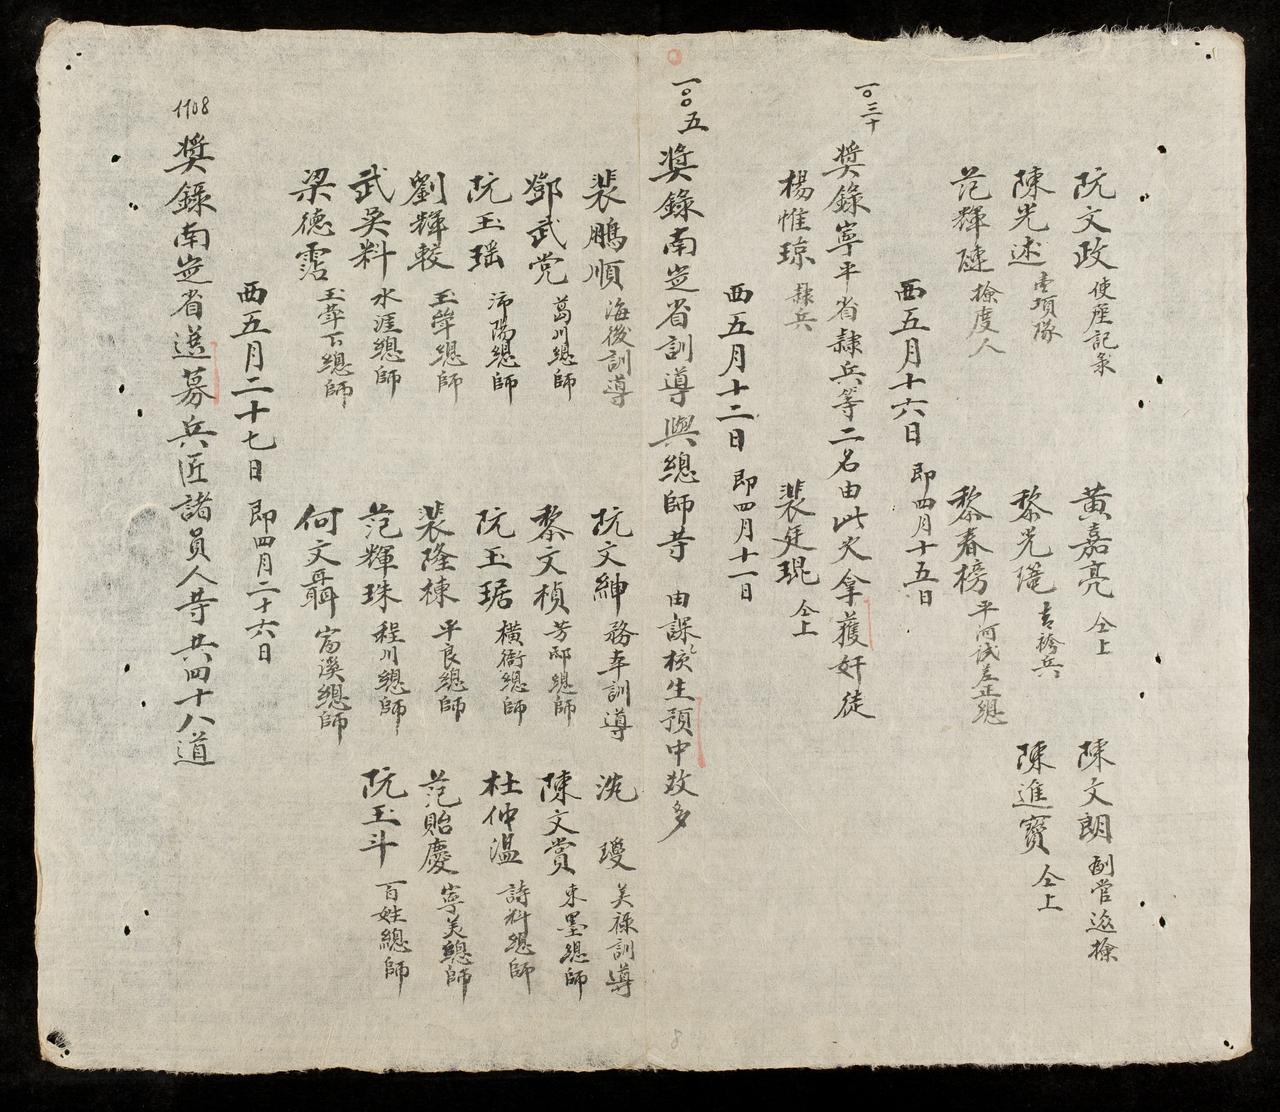 阮文政 使座記彔 黃嘉亮 仝上 陳文朗 副管巡撿
陳光述 壹項隊 黎光 吉袴兵 陳進寶 仝上
范輝陳 撿度人 黎春榜 平河試差正總
西五月十六日 即四月十五日
一〇三十 奬錄寧平省隸兵等二名由此火拿獲奸徒
楊惟琼 隸兵 裴廷琨 仝上
西五月十二日 即四月十一日
一〇〇五 奬錄南定省訓導與總師等 由課核生預中放多
裴鵬順 海後訓導 阮文紳 務本訓導 沈瓊 美祿訓導
鄧武党 葛川總師 黎文楨 芳邸總師 陳文賞 東墨總師
阮玉瑶 沛陽總師 阮玉琚 橫衙總師 杜仲温 詩料總師
劉輝較 玉聳總師 裴隆棟 平良總師 范貽慶 寧美總師
武奐料 水涯總師 范輝珠 程川總師 阮玉斗 百姓總師
梁德霑 玉聳下總師 何文聶 富溪總師
西五月二十七日 即四月二十六日
1108 奬錄南定省送募兵匠諸員人等共四十八道
8